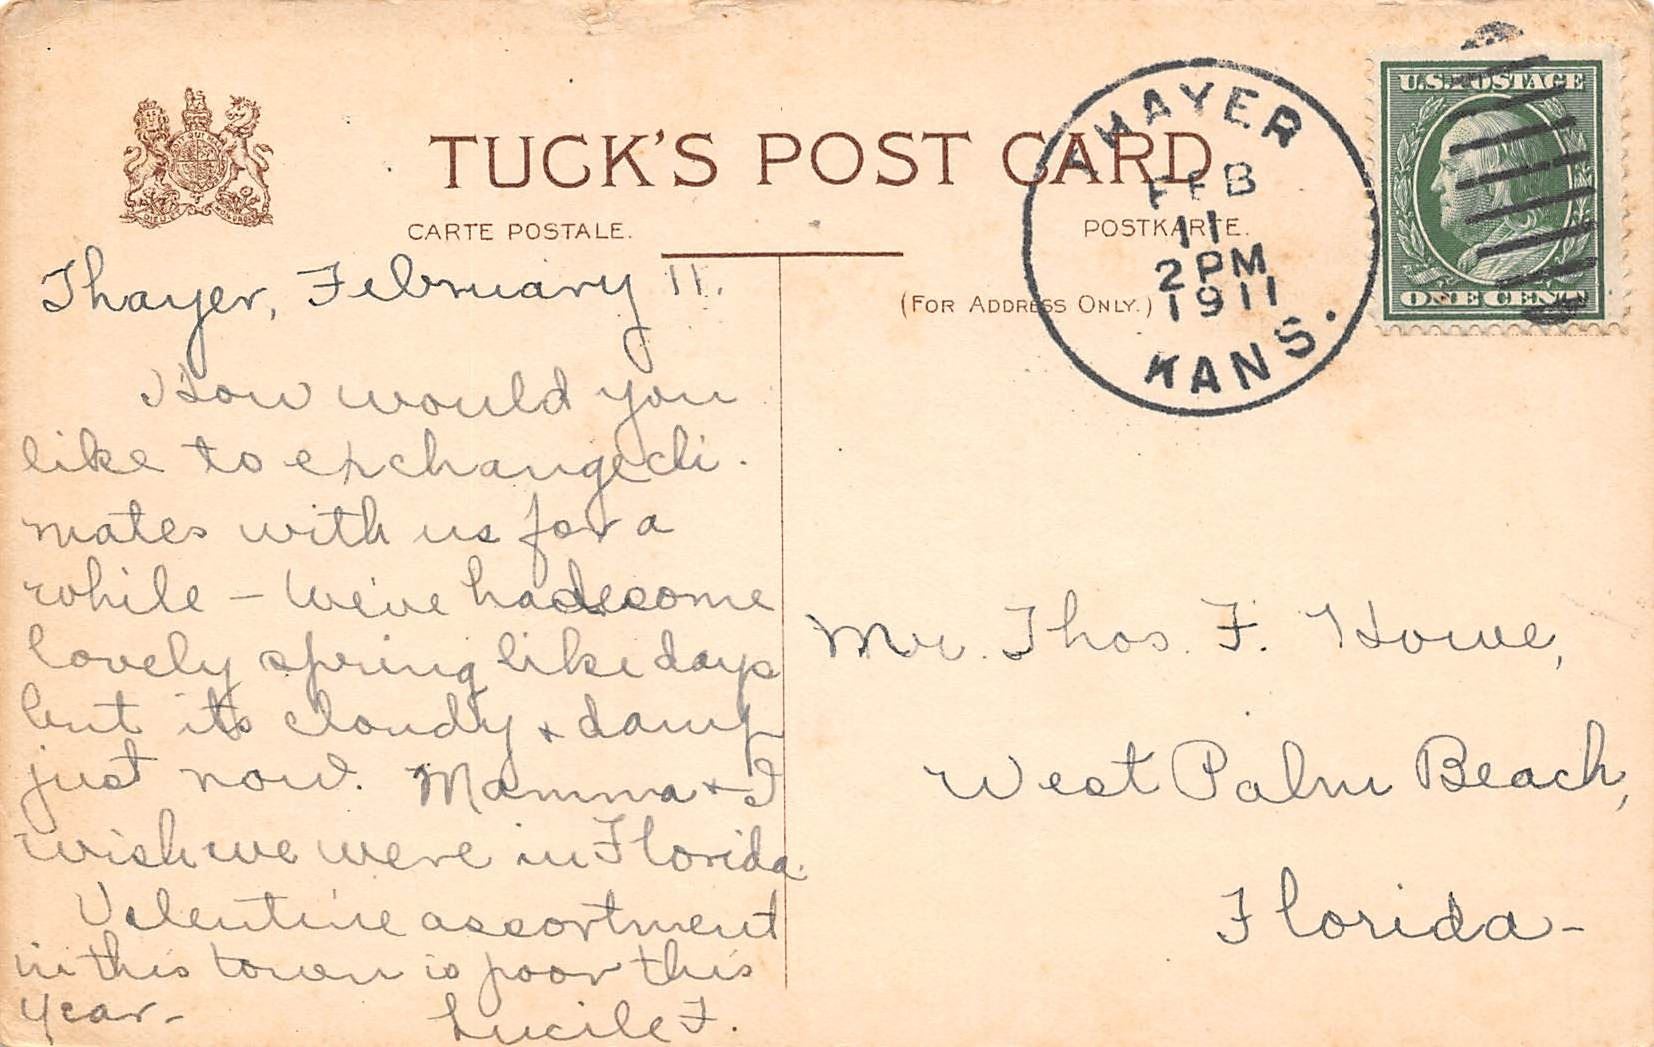 TUCK'S POST CARD
CARTE POSTALE.
POSTKARTE.
(FOR ADDRESS ONLY.)
THAYER
FEB
11
2 PM
1911
KANS.
U.S. POSTAGE
ONE CENT
Thayer, February 11.
How would you
like to exchange cli-
mates with us for a
while - We've had some
lovely spring like days
but its cloudy & damp
just now. Mamma & I
wish we were in Florida.
Valentine assortment
in this town is poor this
year-
Lucile F.
Mr. Thos. F. Howe,
West Palm Beach,
Florida-